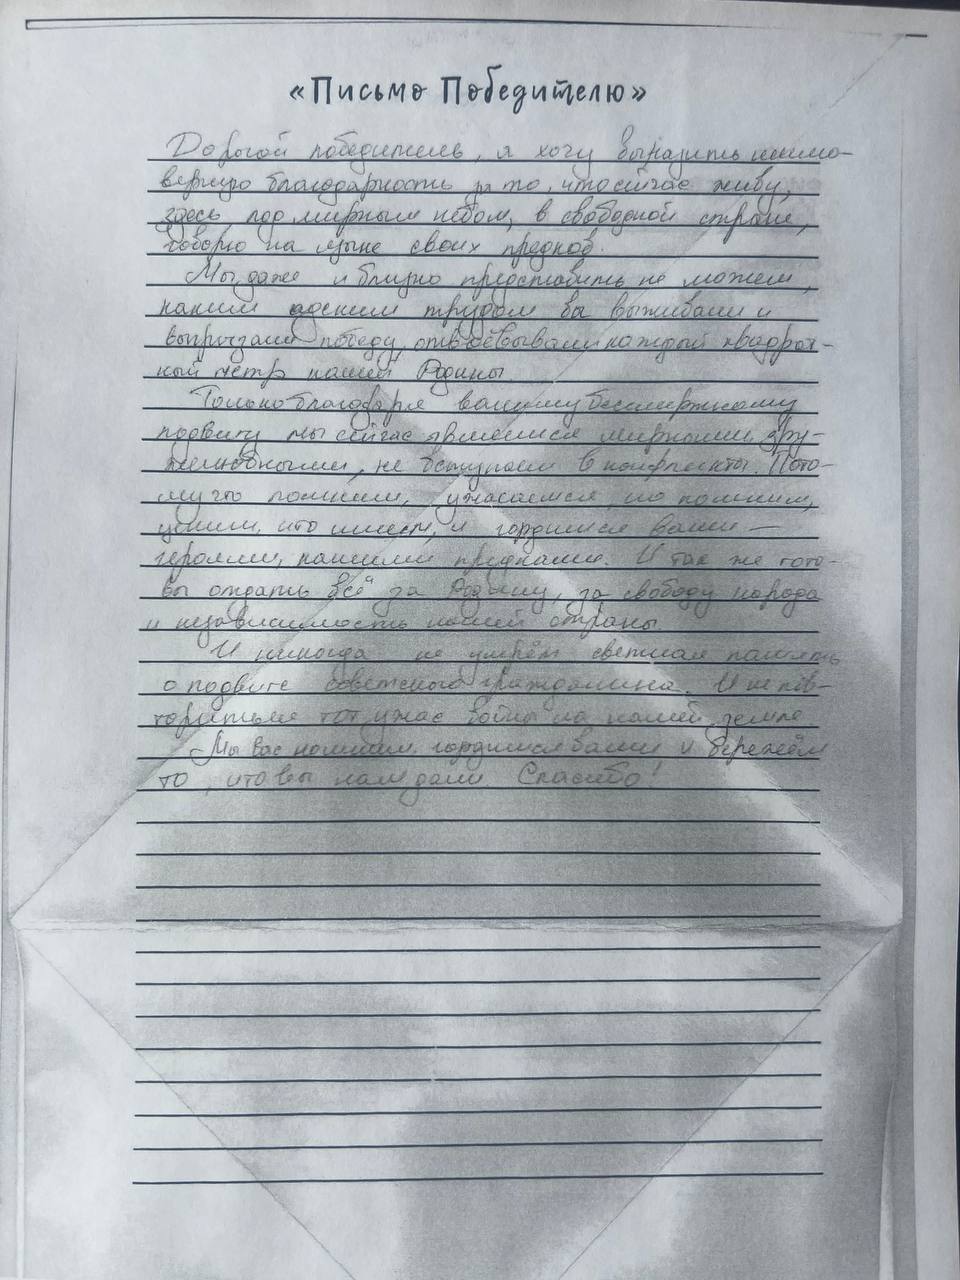 «Письмо Победителю»
Дорогой победитель, я хочу выразить неимо-
верную благодарность за то, что сейчас живу,
здесь под мирным небом, в свободной стране,
говорю на языке своих предков.
Мы даже и близко представить не можем,
каким адским трудом вы выживали и
выгрызали победу, отвоёвывали каждый квадрат-
ный метр нашей Родины.
Только благодаря вашему бессмертному
подвигу мы сейчас являемся мирными, дру-
желюбными, не вступаем в конфликты. Пото-
му что помним, ужасаемся, но помним,
ценим, что имеем, и гордимся вами –
героями, нашими предками. И так же гото-
вы отдать всё за Родину, за свободу народа
и независимость нашей страны.
И никогда не умрёт светлая память
о подвиге советского гражданина. И не пов-
торится тот ужас войны на нашей земле.
Мы вас помним, гордимся вами и бережём
то, что вы нам дали. Спасибо!